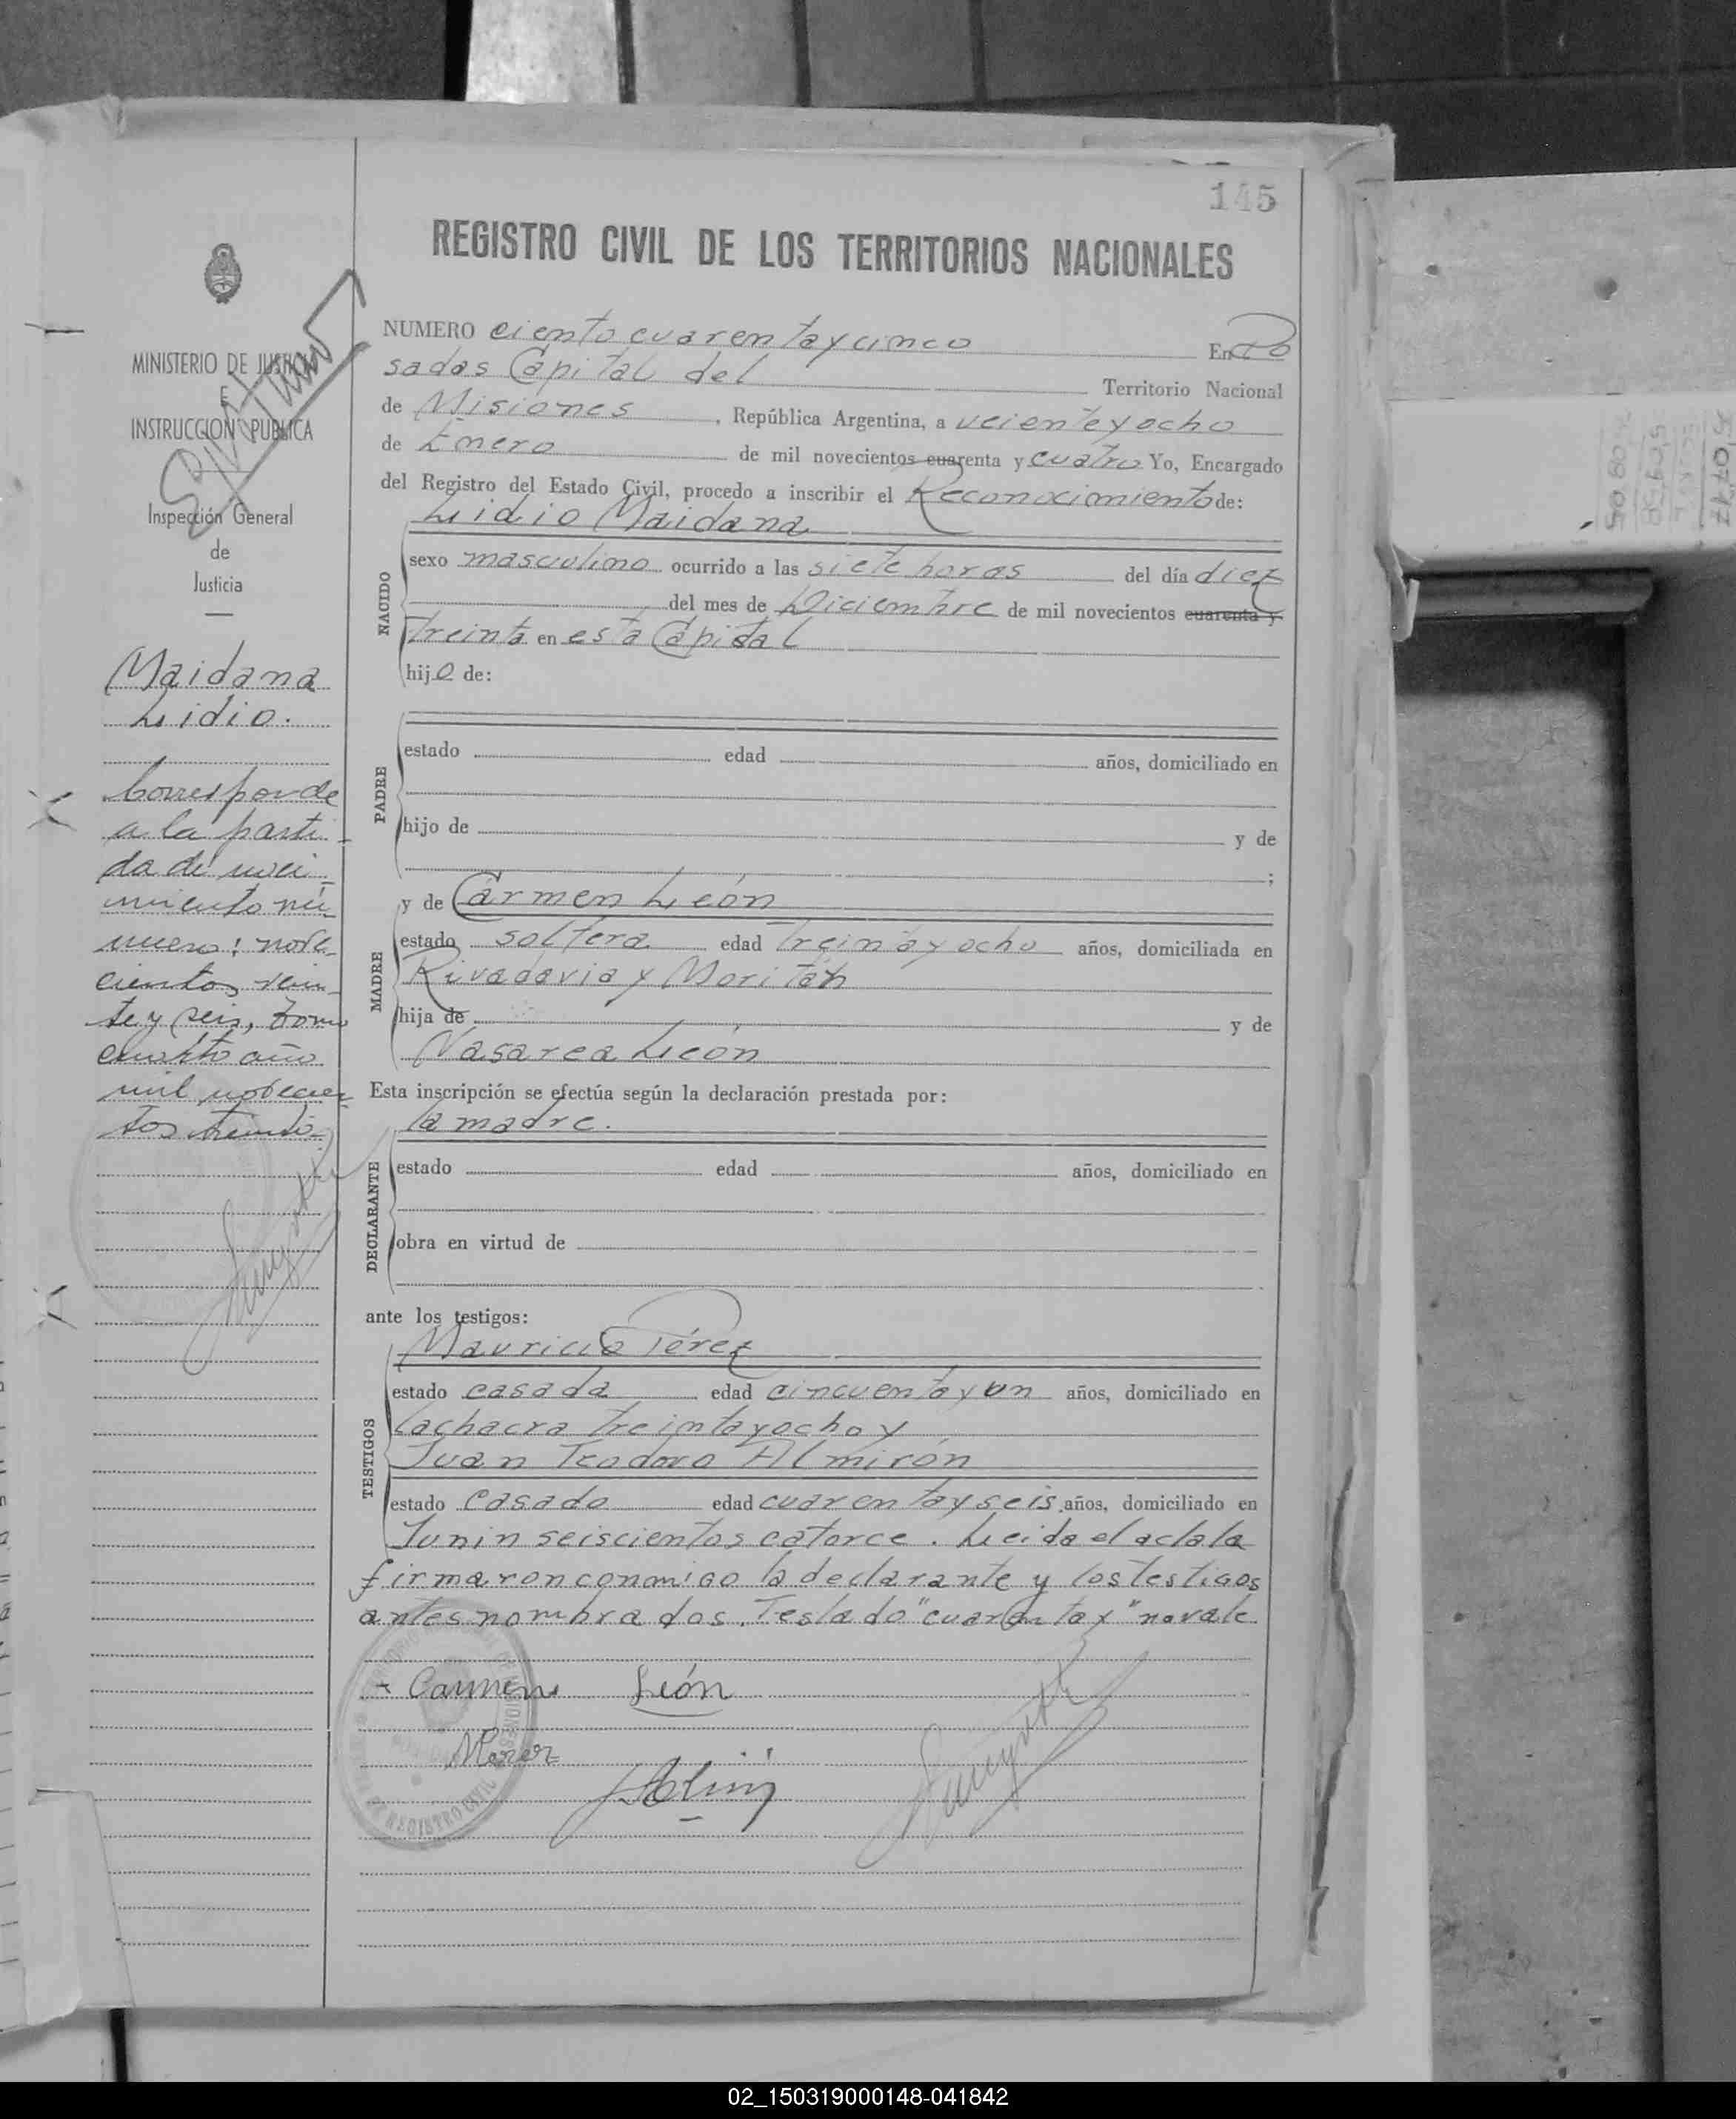 145
REGISTRO CIVIL DE LOS TERRITORIOS NACIONALES
MINISTERIO DE JUSTICIA
E
INSTRUCCION PUBLICA
Inspección General
de
Justicia
Maidana
Lidio.
Corresponde
a la parti-
da de naci-
miento nú-
mero: nove-
cientos vein-
te y seis, tomo
cuarto año
mil novecien
tos treinta.
NUMERO ciento cuarenta y cinco En Po
sadas Capital del Territorio Nacional
de Misiones, República Argentina, a veiente y ocho
de Enero de mil novecientos cuarenta y cuatro Yo, Encargado
del Registro del Estado Civil, procedo a inscribir el Reconocimiento de:
Lidio Maidana
NACIDO
sexo masculino ocurrido a las siete horas del día diez
del mes de Diciembre de mil novecientos cuarenta y
treinta en esta Capital
hijo de:
PADRE
estado edad años, domiciliado en
hijo de y de
;
y de Carmen León
MADRE
estado soltera edad treinta y ocho años, domiciliada en
Rivadavia y Moritán
hija de y de
Nasarea León
Esta inscripción se efectúa según la declaración prestada por:
la madre.
DECLARANTE
estado edad años, domiciliado en
obra en virtud de
ante los testigos:
Mauricio Pérez
TESTIGOS
estado casada edad cincuenta y un años, domiciliado en
la chacra treinta y ocho y
Juan Teodoro Almirón
estado casado edad cuarenta y seis años, domiciliado en
Junin seiscientos catorce. Leida el acta la
firmaron conmigo la declarante y los testigos
antes nombrados. Testado "cuarenta y" no vale.
Carmen León
02_150319000148-041842